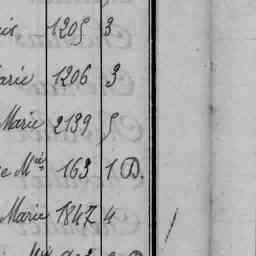 1205 3
arie 1206 3
Marie 2139 5
e Mie 163 1 D.
Marie 1847 4